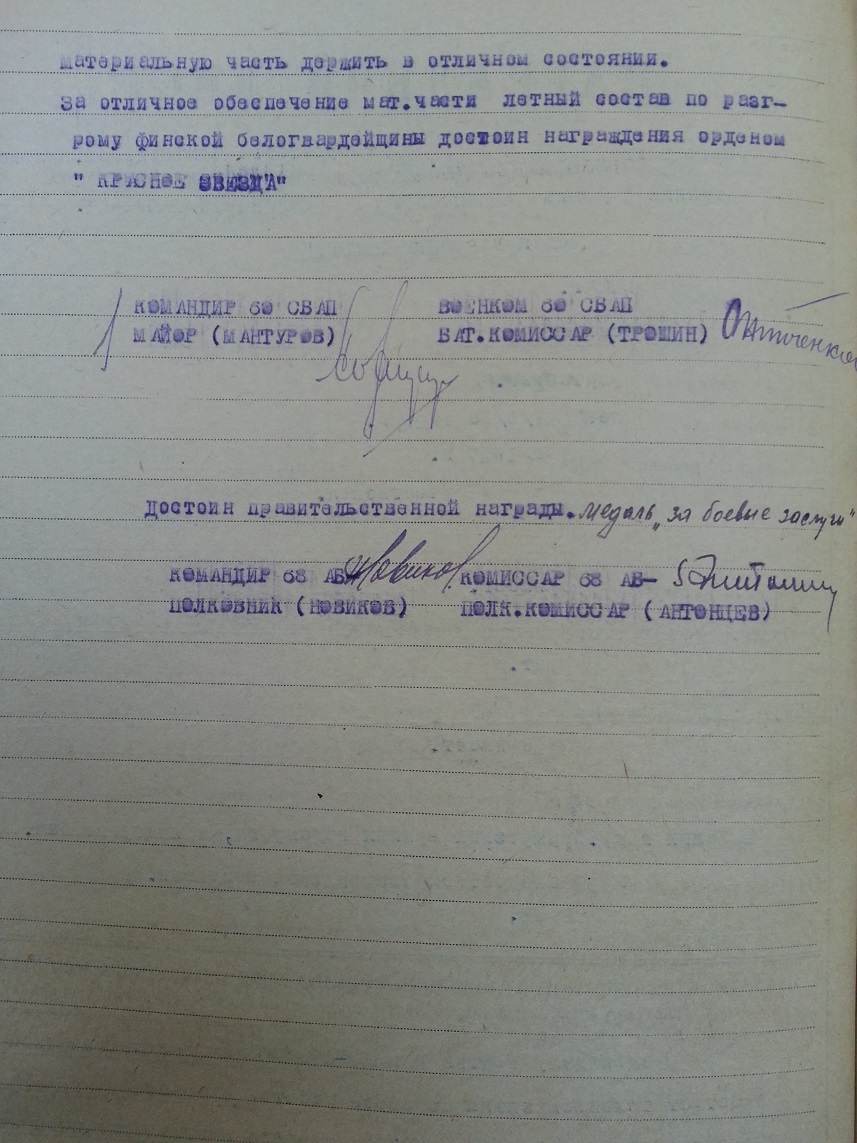 материальную часть держить в отличном состоянии.
За отличное обеспечение мат.части летный состав по разг-
рому финской белогвардейщины достоин награждения орденом
" КРАСНОЕ ЗВЕЗДА"
КОМАНДИР 60 СБАП ВОЕНКОМ 60 СБАП
МАЙОР (МАНТУРОВ) БАТ.КОМИССАР (ТРОШИН)
Достоин правительственной награды. медаль „за боевые заслуги"
КОМАНДИР 68 АБ- Новиков КОМИССАР 68 АБ-
ПОЛКОВНИК (НОВИКОВ) ПОЛК.КОМИССАР (АНТОНЦЕВ)